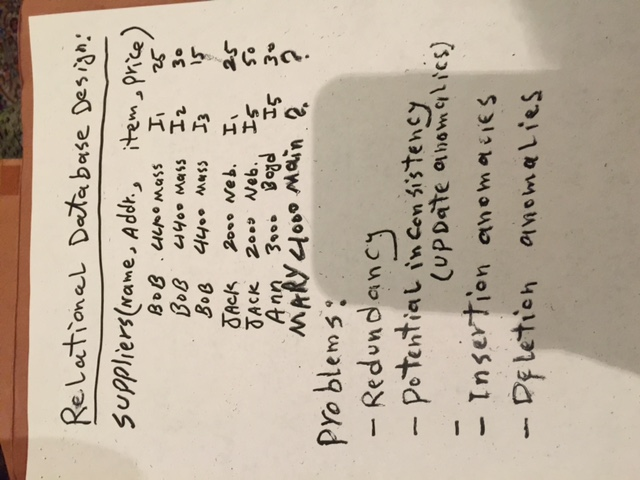 Relational Database Design:
Suppliers(Name, Addr., item, price)
BOB 4400 Mass I1 25
BOB 4400 Mass I2 30
BOB 4400 Mass I3 15
JACK 2000 Neb. I1 25
JACK 2000 Neb. I5 50
Ann 3000 Boyd I5 30
MARY 4000 Main ? ?
Problems:
- Redundancy
- Potential inconsistency
(UPDate anomalies)
-
- Insertion anomalies
- DEletion anomalies